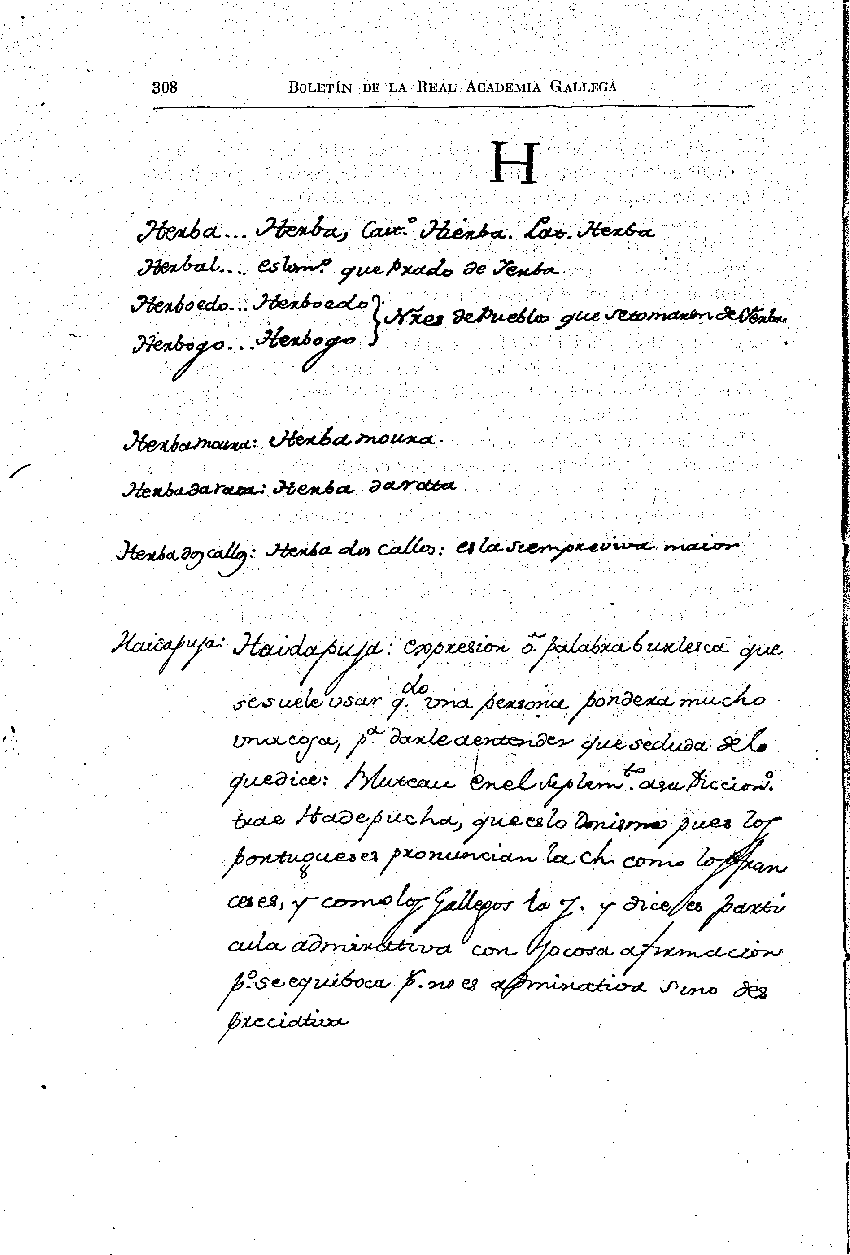 308 BOLETÍN DE LA REAL ACADEMIA GALLEGA
H
Herba... Herba, Cast.º Hierba. Lat. Herba
Herbal... eslomº que Prado de Yerba
Herboedo... Herboedo
Herbogo... Herbogo
} Nres de Pueblos que se tomaron de Yerba
Herba moura: Herba moura.
Herba da rata: Herba da ratta
Herba dos callos: Herba dos callos: es la siempreviva maior
Haidapuja: Haidapuja: expresion o palabra burlesca que
se suele vsar q.do vna persona pondera mucho
vna cosa, p.a darle a entender que se duda de lo
que dice: Bluteau en el Suplem.to a su Diccion.º
trae Hadepucha, que es lo mismo pues los
portugueses pronuncian la ch como los fran
ceses, y como los Gallegos la j. y dice, es parti
cula admirativa con jocosa afirmacion
p.º se equiboca p. no es admirativa sino des
preciativa